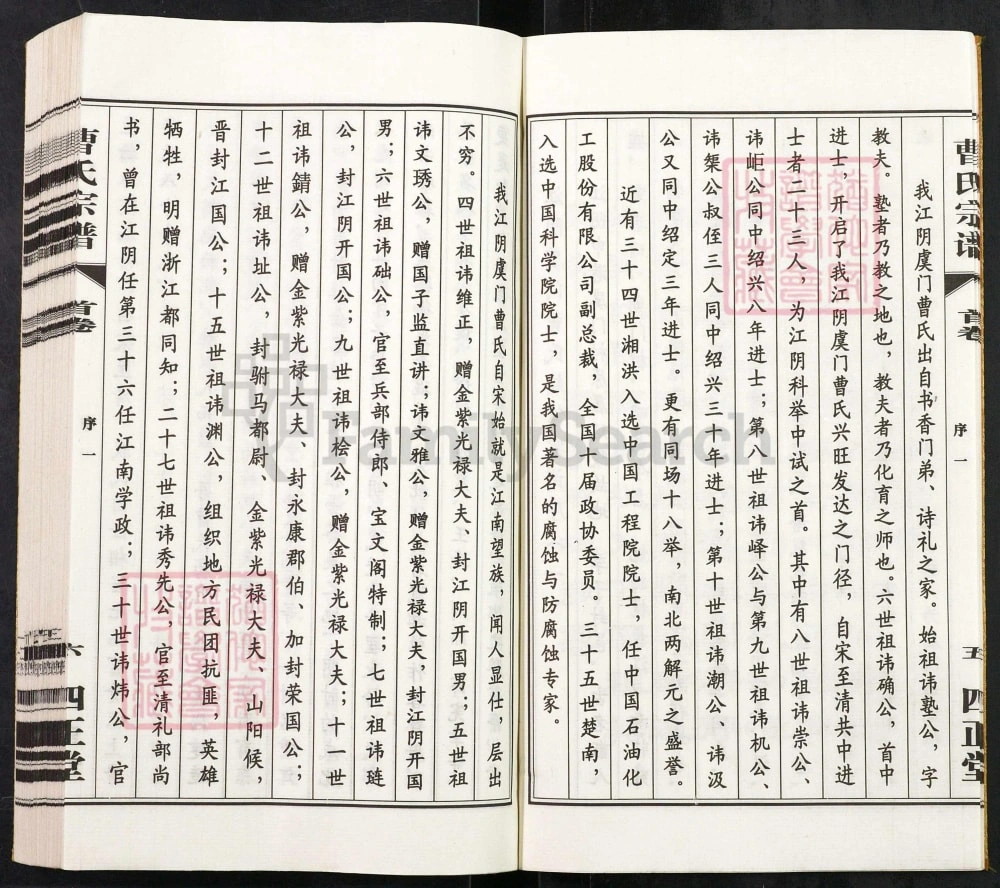 曹氏宗谱
首卷
序一
五
四正堂
我江阴虞门曹氏出自书香门弟、诗礼之家。始祖讳塾公，字
教夫。塾者乃教之地也，教夫者乃化育之师也。六世祖讳确公，首中
进士，开启了我江阴虞门曹氏兴旺发达之门径，自宋至清共中进
士者二十三人，为江阴科举中试之首。其中有八世祖讳崇公、
讳岠公同中绍兴八年进士；第八世祖讳峄公与第九世祖讳机公、
讳榘公叔侄三人同中绍兴三十年进士；第十世祖讳潮公、讳汲
公又同中绍定三年进士。更有同场十八举，南北两解元之盛誉。
近有三十四世湘洪入选中国工程院院士，任中国石油化
工股份有限公司副总裁，全国十届政协委员。三十五世楚南，
入选中国科学院院士，是我国著名的腐蚀与防腐蚀专家。
我江阴虞门曹氏自宋始就是江南望族，闻人显仕，层出
不穷。四世祖讳维正，赠金紫光禄大夫、封江阴开国男；五世祖
讳文琇公，赠国子监直讲；讳文雅公，赠金紫光禄大夫，封江阴开国
男；六世祖讳础公，官至兵部侍郎、宝文阁特制；七世祖讳琏
公，封江阴开国公；九世祖讳桧公，赠金紫光禄大夫；十一世
祖讳錆公，赠金紫光禄大夫、封永康郡伯、加封荣国公；
十二世祖讳址公，封驸马都尉、金紫光禄大夫、山阳候，
晋封江国公；十五世祖讳渊公，组织地方民团抗匪，英雄
牺牲，明赠浙江都同知；二十七世祖讳秀先公，官至清礼部尚
书，曾在江阴任第三十六任江南学政；三十世讳炜公，官
曹氏宗谱
首卷
序一
六
四正堂
FamilySearch